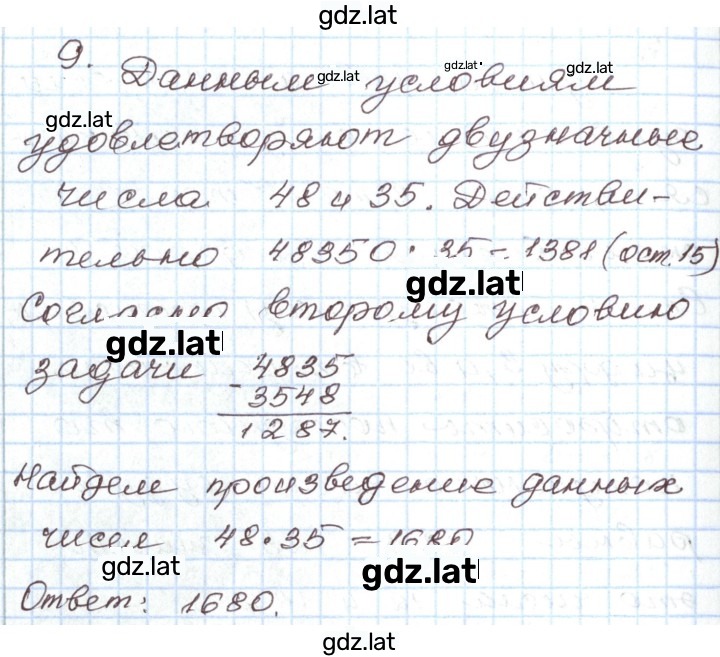 gdz.lat
9. Данным gdz.lat условиям gdz.lat gdz.lat
gdz.lat
удовлетворяют двузначные
числа 48 и 35. Действи-
тельно 48350 : 35 = 1381 (ост. 15)
gdz.lat
Согласно второму условию
gdz.lat
задачи 4835
- 3548
1287.
Найдем произведение данных
чисел 48 · 35 = 1680
gdz.lat gdz.lat
Ответ: 1680.
gdz.lat